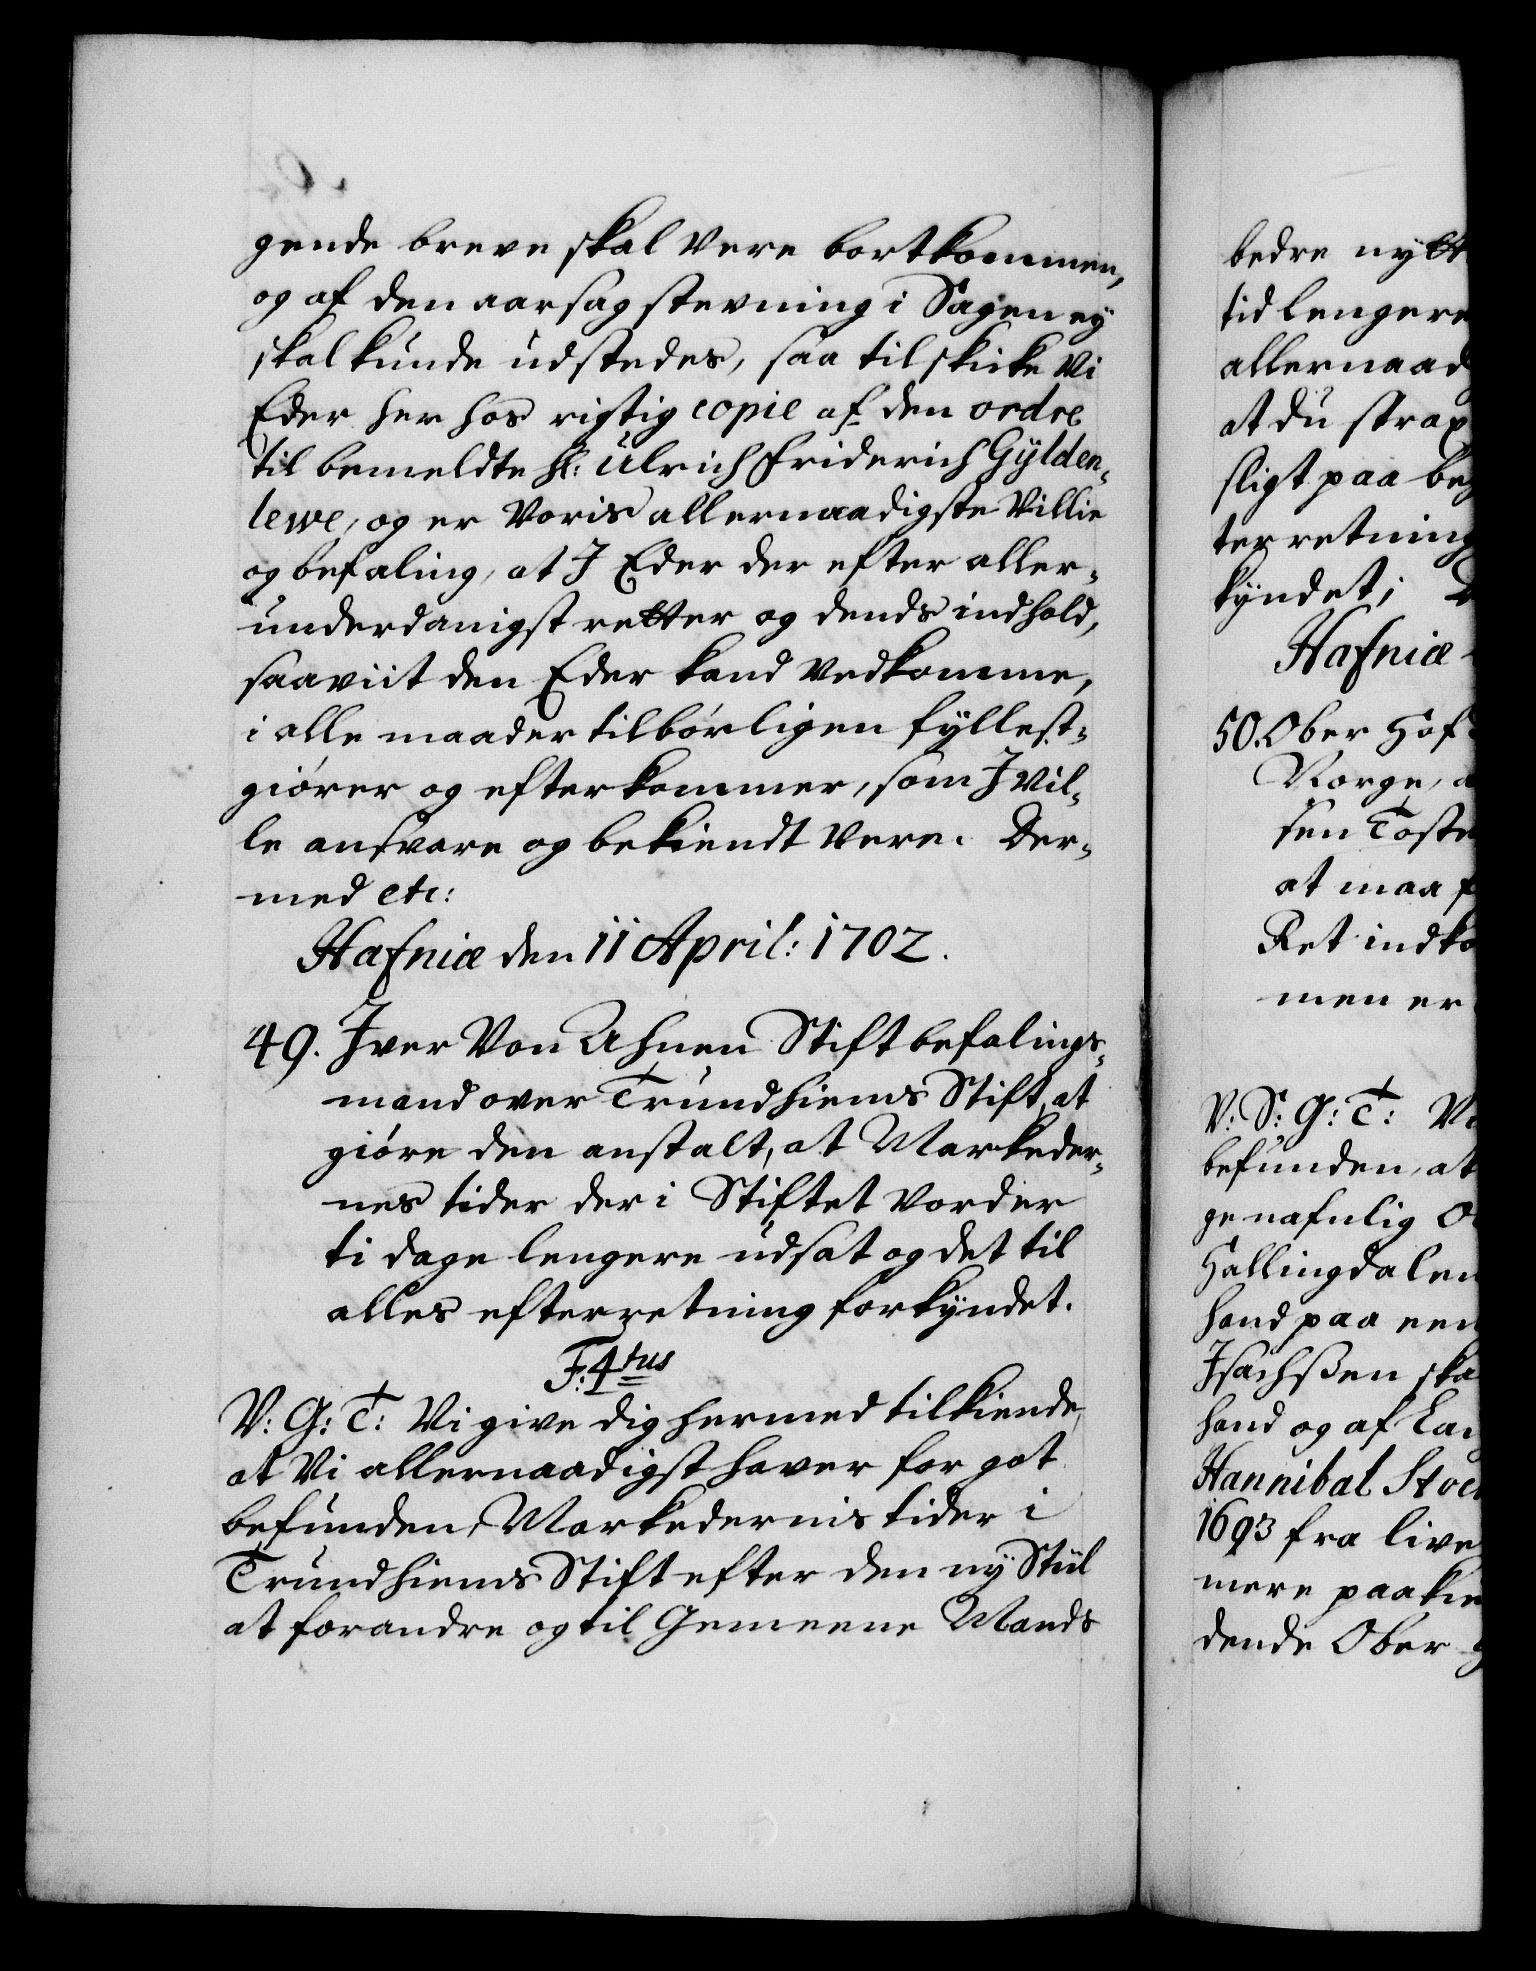 gende breve skal være bortkommen,
og af den aarsag stevning i Sagen ey
skal kunde udstedes, saa tilskicke Vi
Eder her hos rigtig copie af den ordre
til bemeldte Hr: Ulrich Friderich Gylden-
lewe, og er Voris allernaadigste Villie
og befaling, at I Eder der efter aller-
underdanigst retter og dends indhold,
saaviit den Eder kand vedkomme,
i alle maader tilbørligen fyllest-
giører og efterkommer, som I vil-
le ansvare og bekiendt være. Der-
med etc:
Hafniæ den 11 April: 1702.
49. Iver Von Ahnen Stiftbefalings-
mand over Trundhiems Stift, at
giøre den anstalt, at Markeder-
nes tider der i Stiftet vorder
ti dage lengere udsat og det til
alles efterretning forkyndet.
F: 4tus
V: G: T: Vi give dig hermed tilkiende,
at Vi allernaadigst haver for got
befunden, Markedernis tider i
Trundhiems Stift efter den ny Stiil
at forandre og til Gemeene Mands
bedre nytt
tid lengere
allernaad
at du strax
sligt paa be
terretning
kyndet;
Hafniæ
50. Ober Hof
Norge, a
sen Toste
at maa f
Ret indko
men er
V: S: G: T: Vi
befunden, at
ge nafnlig O
Hallingdalen
hand paa een
Isachsen ska
hand og af Lan
Hannibal Stoc
1693 fra live
mere paakie
dende Ober